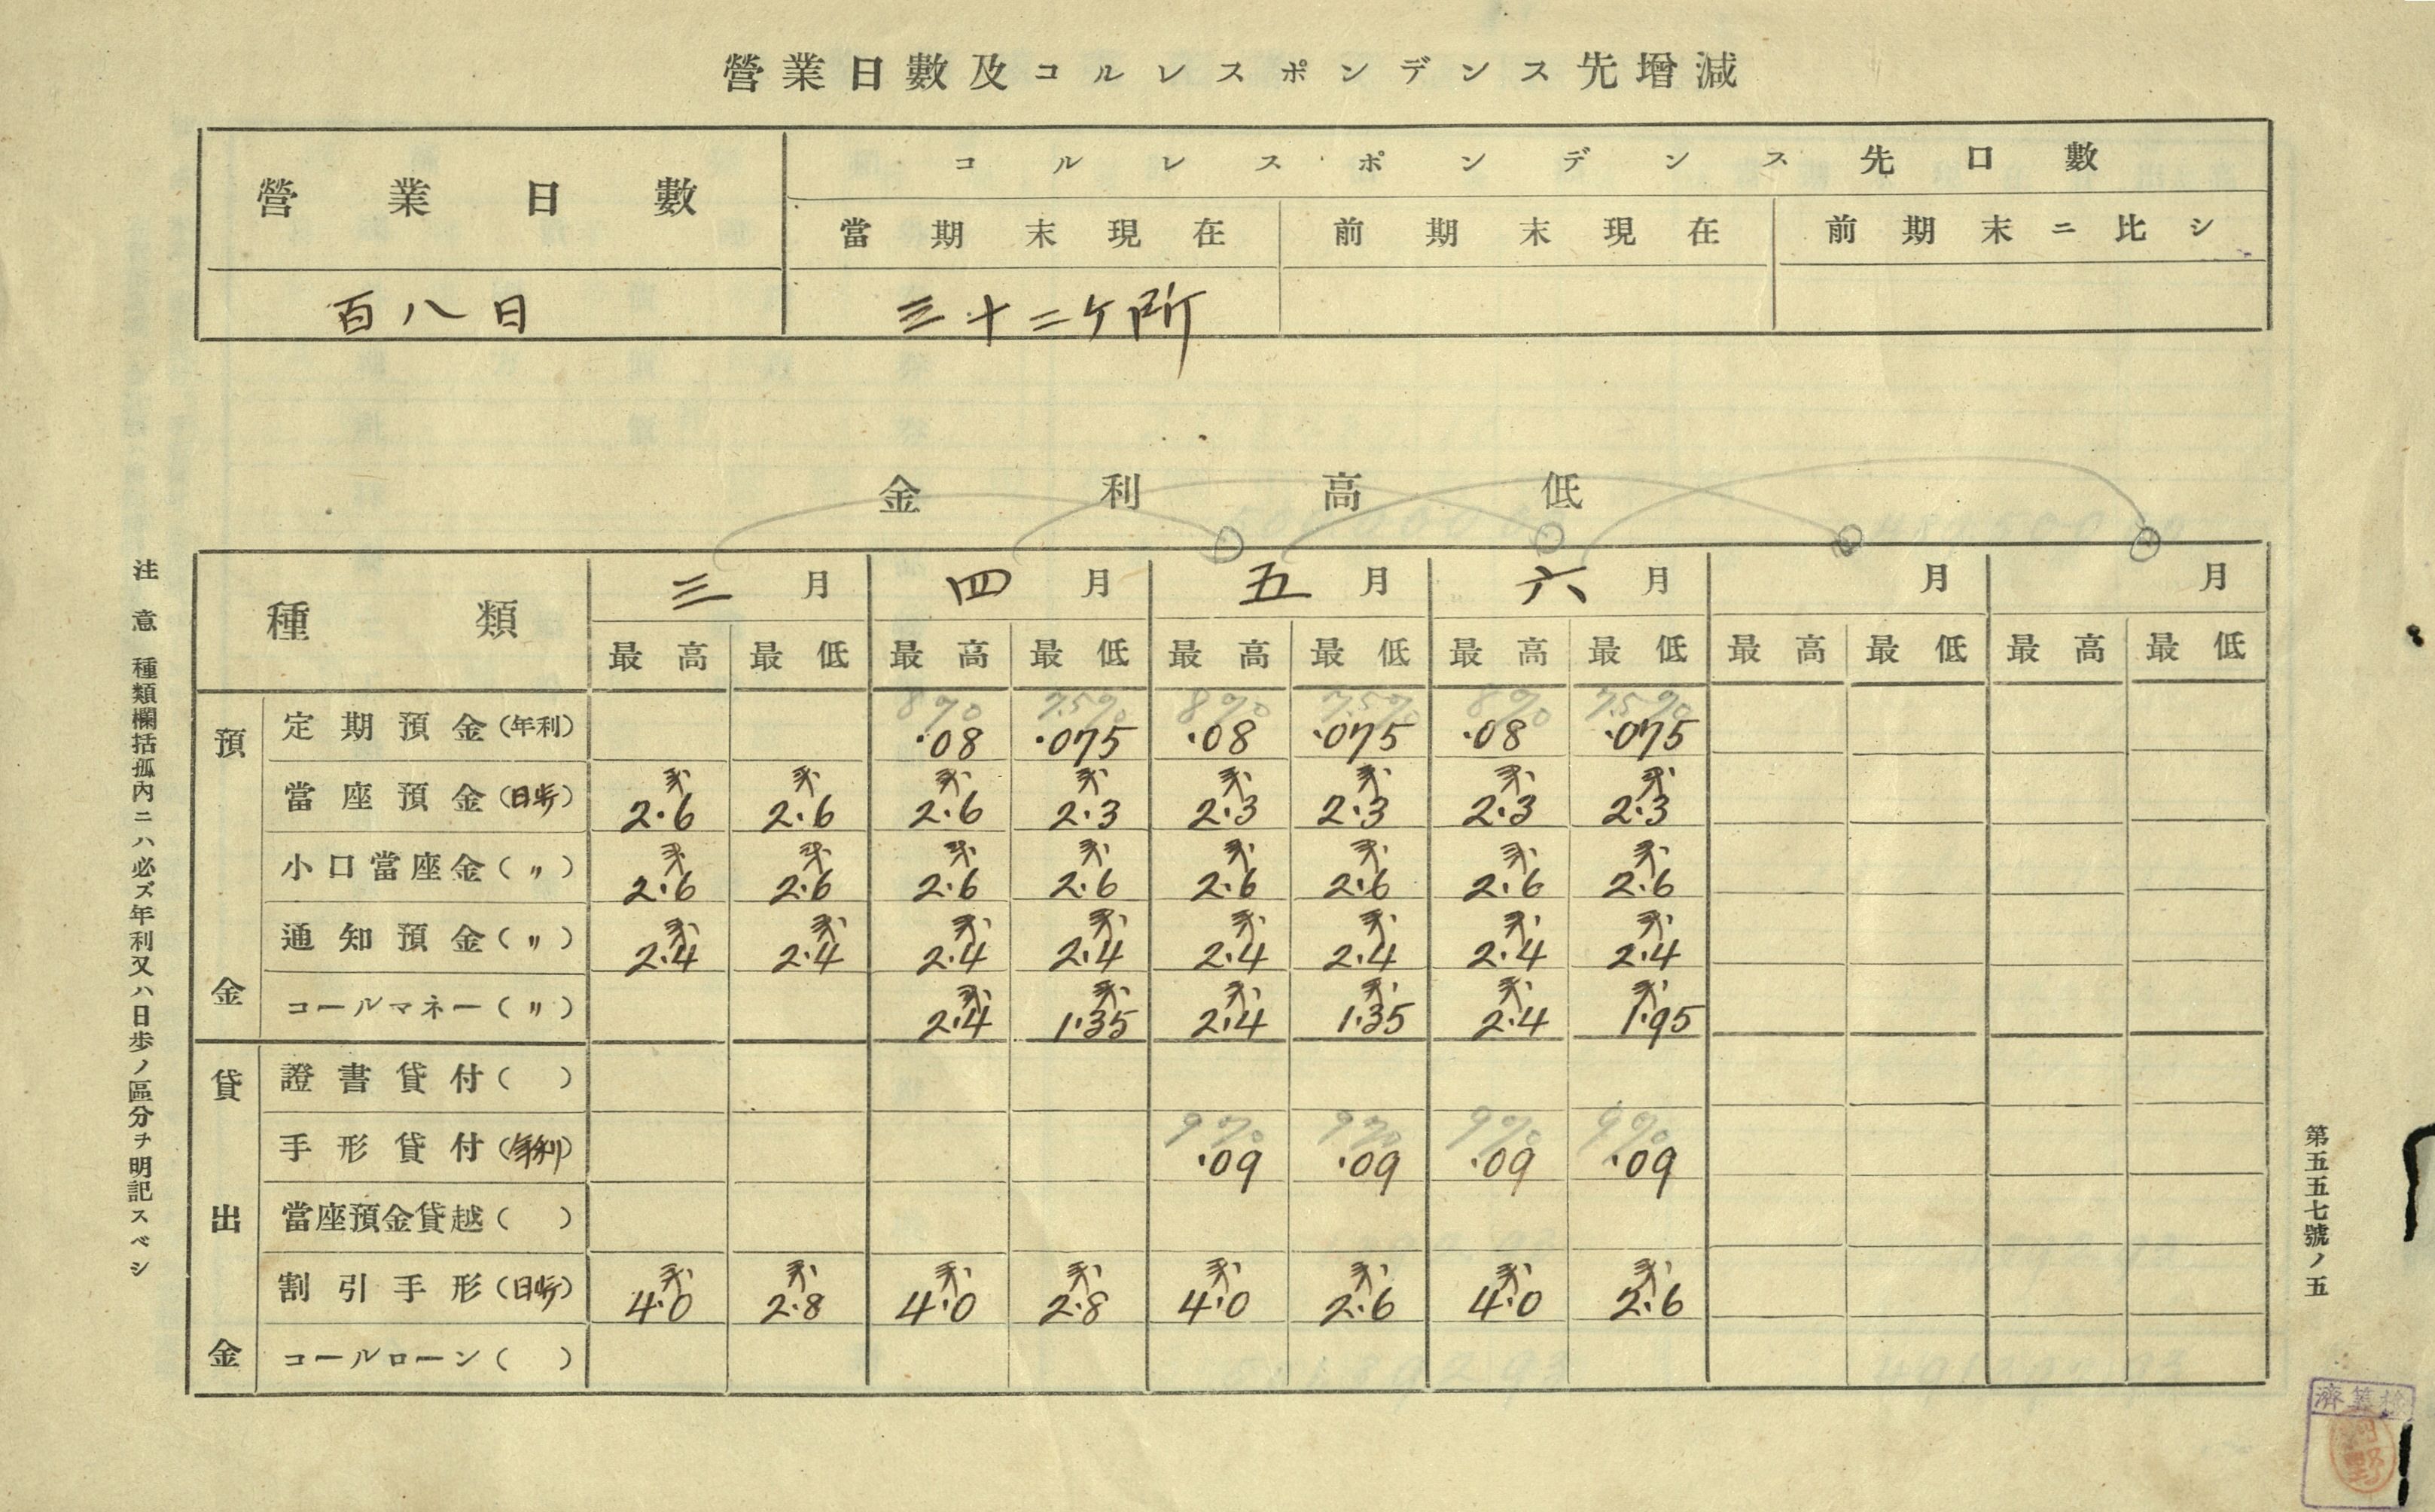 營業日數及コルレスポンデンス先增減
營業日數
コルレスポンデンス先口數
當期末現在 前期末現在 前期末ニ比シ
百八日 三十二ケ所
金利高低
種類 三月 四月 五月 六月 月 月
最高 最低 最高 最低 最高 最低 最高 最低 最高 最低 最高 最低
預金
8% 7.5% 8% 7.5% 8% 7.5%
定期預金(年利) .08 .075 .08 .075 .08 .075
當座預金(日歩) 2.6 2.6 2.6 2.3 2.3 2.3 2.3 2.3
小口當座金(〃) 2.6 2.6 2.6 2.6 2.6 2.6 2.6 2.6
通知預金(〃) 2.4 2.4 2.4 2.4 2.4 2.4 2.4 2.4
コールマネー(〃) 2.4 1.35 2.4 1.35 2.4 1.95
貸出金
證書貸付( )
9% 9% 9% 9%
手形貸付(年利) .09 .09 .09 .09
當座預金貸越( )
割引手形(日歩) 4.0 2.8 4.0 2.8 4.0 2.6 4.0 2.6
コールローン( )
注意 種類欄括孤內ニハ必ズ年利又ハ日歩ノ區分ヲ明記スベシ
第五五七號ノ五
檢算濟